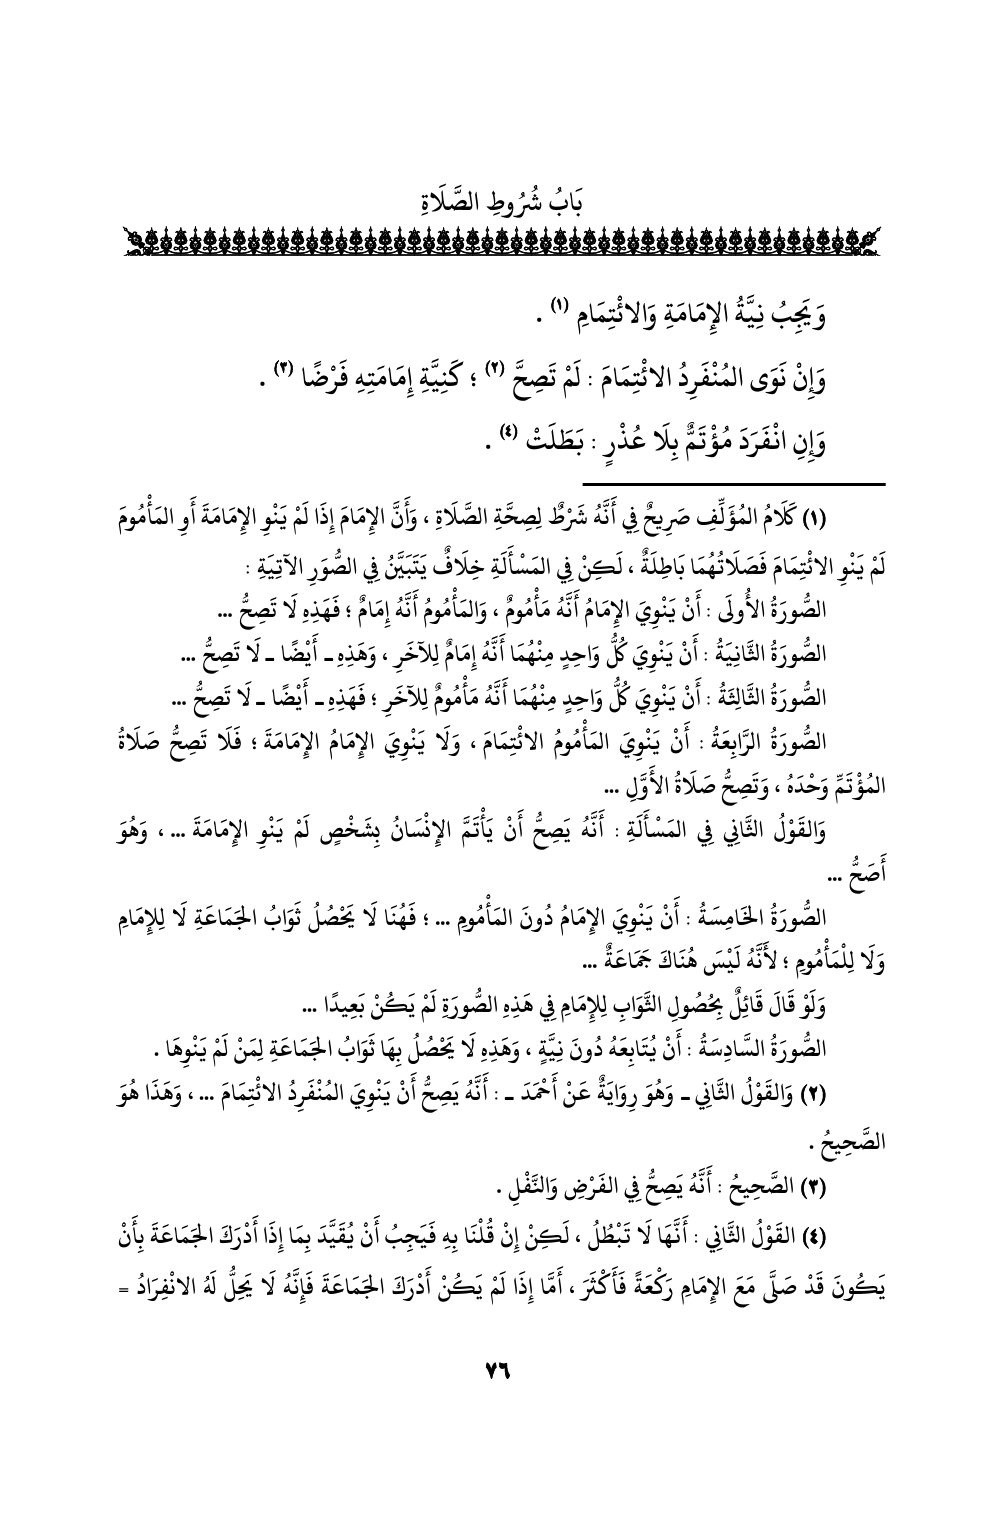 بَابُ شُرُوطِ الصَّلَاةِ
وَيَجِبُ نِيَّةُ الإِمَامَةِ وَالائْتِمَامِ (١) .
وَإِنْ نَوَى المُنْفَرِدُ الائْتِمَامَ : لَمْ تَصِحَّ (٢) ؛ كَنِيَّةِ إِمَامَتِهِ فَرْضًا (٣) .
وَإِنِ انْفَرَدَ مُؤْتَمٌّ بِلَا عُذْرٍ : بَطَلَتْ (٤) .
(١) كَلَامُ المُؤَلِّفِ صَرِيحٌ فِي أَنَّهُ شَرْطٌ لِصِحَّةِ الصَّلَاةِ ، وَأَنَّ الإِمَامَ إِذَا لَمْ يَنْوِ الإِمَامَةَ أَوِ المَأْمُومَ
لَمْ يَنْوِ الائْتِمَامَ فَصَلَاتُهُمَا بَاطِلَةٌ ، لَكِنْ فِي المَسْأَلَةِ خِلَافٌ يَتَبَيَّنُ فِي الصُّوَرِ الآتِيَةِ :
الصُّورَةُ الأُولَى : أَنْ يَنْوِيَ الإِمَامُ أَنَّهُ مَأْمُومٌ ، وَالمَأْمُومُ أَنَّهُ إِمَامٌ ؛ فَهَذِهِ لَا تَصِحُّ ...
الصُّورَةُ الثَّانِيَةُ : أَنْ يَنْوِيَ كُلُّ وَاحِدٍ مِنْهُمَا أَنَّهُ إِمَامٌ لِلآخَرِ ، وَهَذِهِ ـ أَيْضًا ـ لَا تَصِحُّ ...
الصُّورَةُ الثَّالِثَةُ : أَنْ يَنْوِيَ كُلُّ وَاحِدٍ مِنْهُمَا أَنَّهُ مَأْمُومٌ لِلآخَرِ ؛ فَهَذِهِ ـ أَيْضًا ـ لَا تَصِحُّ ...
الصُّورَةُ الرَّابِعَةُ : أَنْ يَنْوِيَ المَأْمُومُ الائْتِمَامَ ، وَلَا يَنْوِيَ الإِمَامُ الإِمَامَةَ ؛ فَلَا تَصِحُّ صَلَاةُ
المُؤْتَمِّ وَحْدَهُ ، وَتَصِحُّ صَلَاةُ الأَوَّلِ ...
وَالقَوْلُ الثَّانِي فِي المَسْأَلَةِ : أَنَّهُ يَصِحُّ أَنْ يَأْتَمَّ الإِنْسَانُ بِشَخْصٍ لَمْ يَنْوِ الإِمَامَةَ ... ، وَهُوَ
أَصَحُّ ...
الصُّورَةُ الخَامِسَةُ : أَنْ يَنْوِيَ الإِمَامُ دُونَ المَأْمُومِ ... ؛ فَهُنَا لَا يَحْصُلُ ثَوَابُ الجَمَاعَةِ لَا لِلإِمَامِ
وَلَا لِلْمَأْمُومِ ؛ لأَنَّهُ لَيْسَ هُنَاكَ جَمَاعَةٌ ...
وَلَوْ قَالَ قَائِلٌ بِحُصُولِ الثَّوَابِ لِلإِمَامِ فِي هَذِهِ الصُّورَةِ لَمْ يَكُنْ بَعِيدًا ...
الصُّورَةُ السَّادِسَةُ : أَنْ يُتَابِعَهُ دُونَ نِيَّةٍ ، وَهَذِهِ لَا يَحْصُلُ بِهَا ثَوَابُ الجَمَاعَةِ لِمَنْ لَمْ يَنْوِهَا .
(٢) وَالقَوْلُ الثَّانِي ـ وَهُوَ رِوَايَةٌ عَنْ أَحْمَدَ ـ : أَنَّهُ يَصِحُّ أَنْ يَنْوِيَ المُنْفَرِدُ الائْتِمَامَ ... ، وَهَذَا هُوَ
الصَّحِيحُ .
(٣) الصَّحِيحُ : أَنَّهُ يَصِحُّ فِي الفَرْضِ وَالنَّفْلِ .
(٤) القَوْلُ الثَّانِي : أَنَّهَا لَا تَبْطُلُ ، لَكِنْ إِنْ قُلْنَا بِهِ فَيَجِبُ أَنْ يُقَيَّدَ بِمَا إِذَا أَدْرَكَ الجَمَاعَةَ بِأَنْ
يَكُونَ قَدْ صَلَّى مَعَ الإِمَامِ رَكْعَةً فَأَكْثَرَ ، أَمَّا إِذَا لَمْ يَكُنْ أَدْرَكَ الجَمَاعَةَ فَإِنَّهُ لَا يَحِلُّ لَهُ الانْفِرَادُ =
٧٦